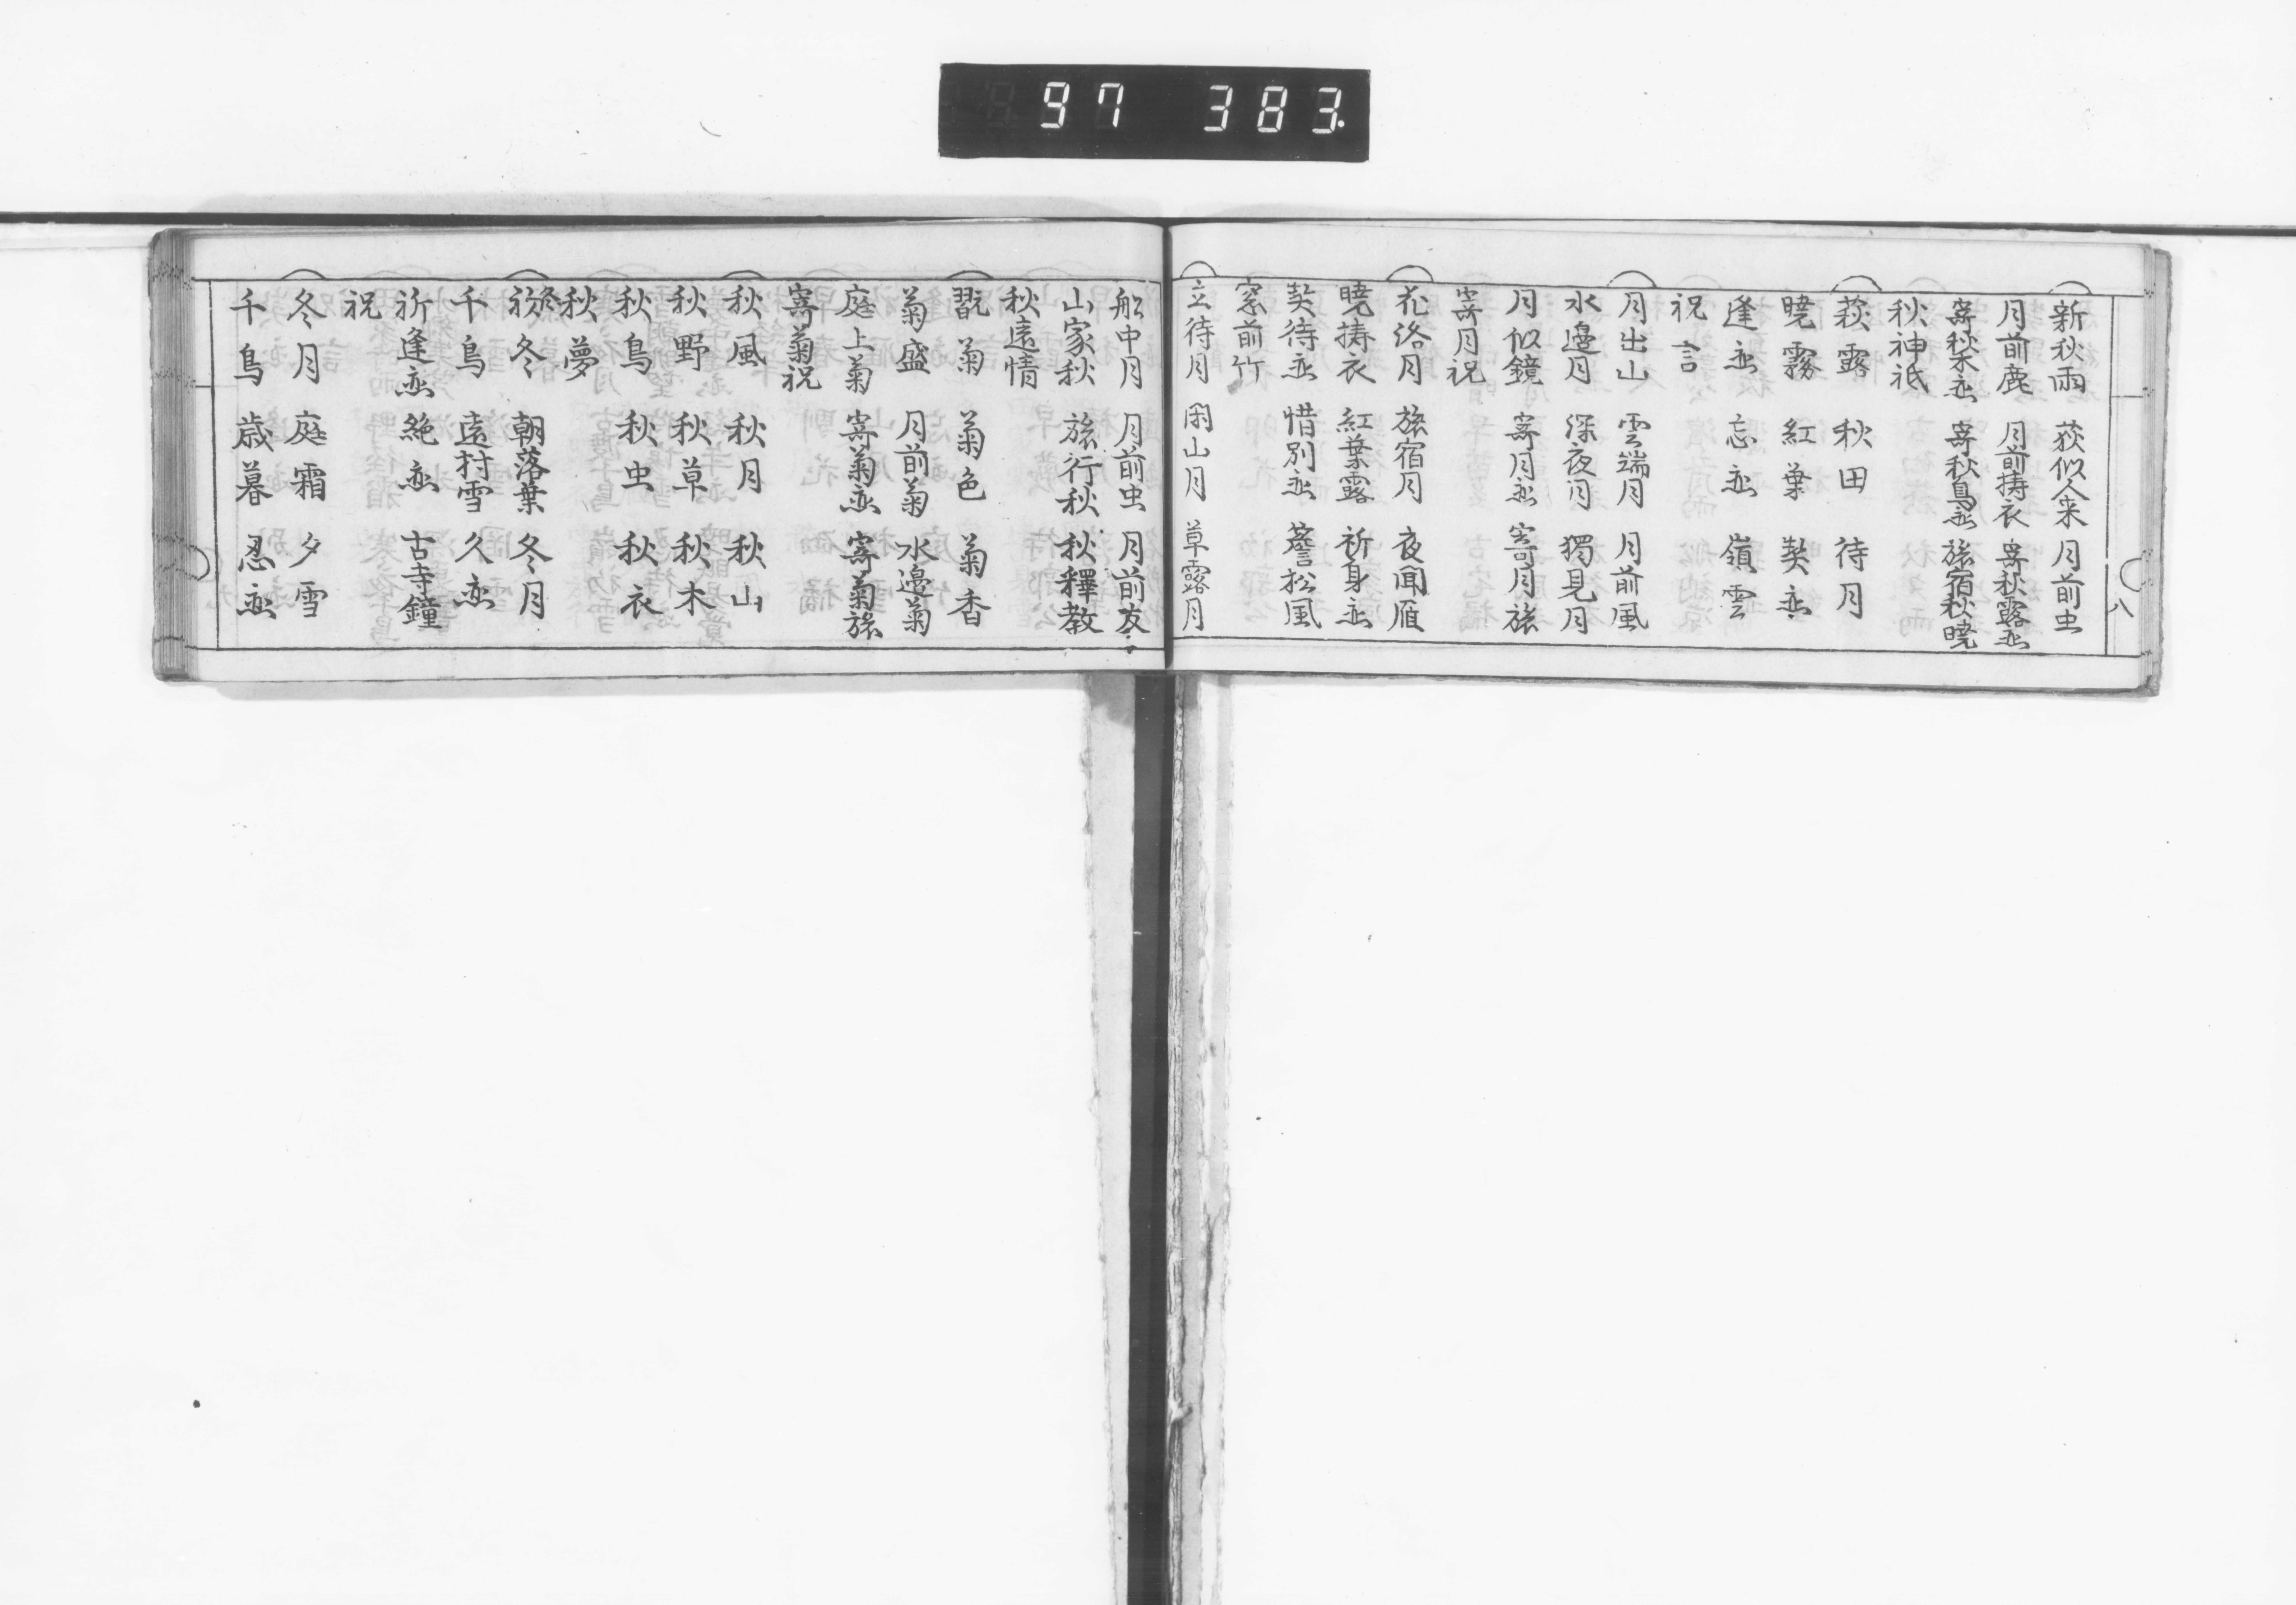 97 383
新秋雨 荻似人来 月前虫
月前鹿 月前擣衣 寄秋露恋
寄秋木恋 寄秋鳥恋 旅宿秋暁
秋神祇
萩露 秋田 待月
暁霧 紅葉 契恋
逢恋 忘恋 嶺雲
祝言
月出山 雲端月 月前風
水邊月 深夜月 獨見月
月似鏡 寄月恋 寄月旅
寄月祝
花洛月 旅宿月 夜聞雁
暁擣衣 紅葉露 祈身恋
契待恋 惜別恋 簷松風
窓前竹
立待月 閑山月 草露月
八
船中月 月前虫 月前友
山家秋 旅行秋 秋釋教
秋遠情
翫菊 菊色 菊香
菊盛 月前菊 水邊菊
庭上菊 寄菊恋 寄菊旅
寄菊祝
秋風 秋月 秋山
秋野 秋草 秋木
秋鳥 秋虫 秋衣
秋夢
初冬 朝落葉 冬月
千鳥 遠村雪 久恋
祈逢恋 絶恋 古寺鐘
祝
冬月 庭霜 夕雪
千鳥 歳暮 忍恋